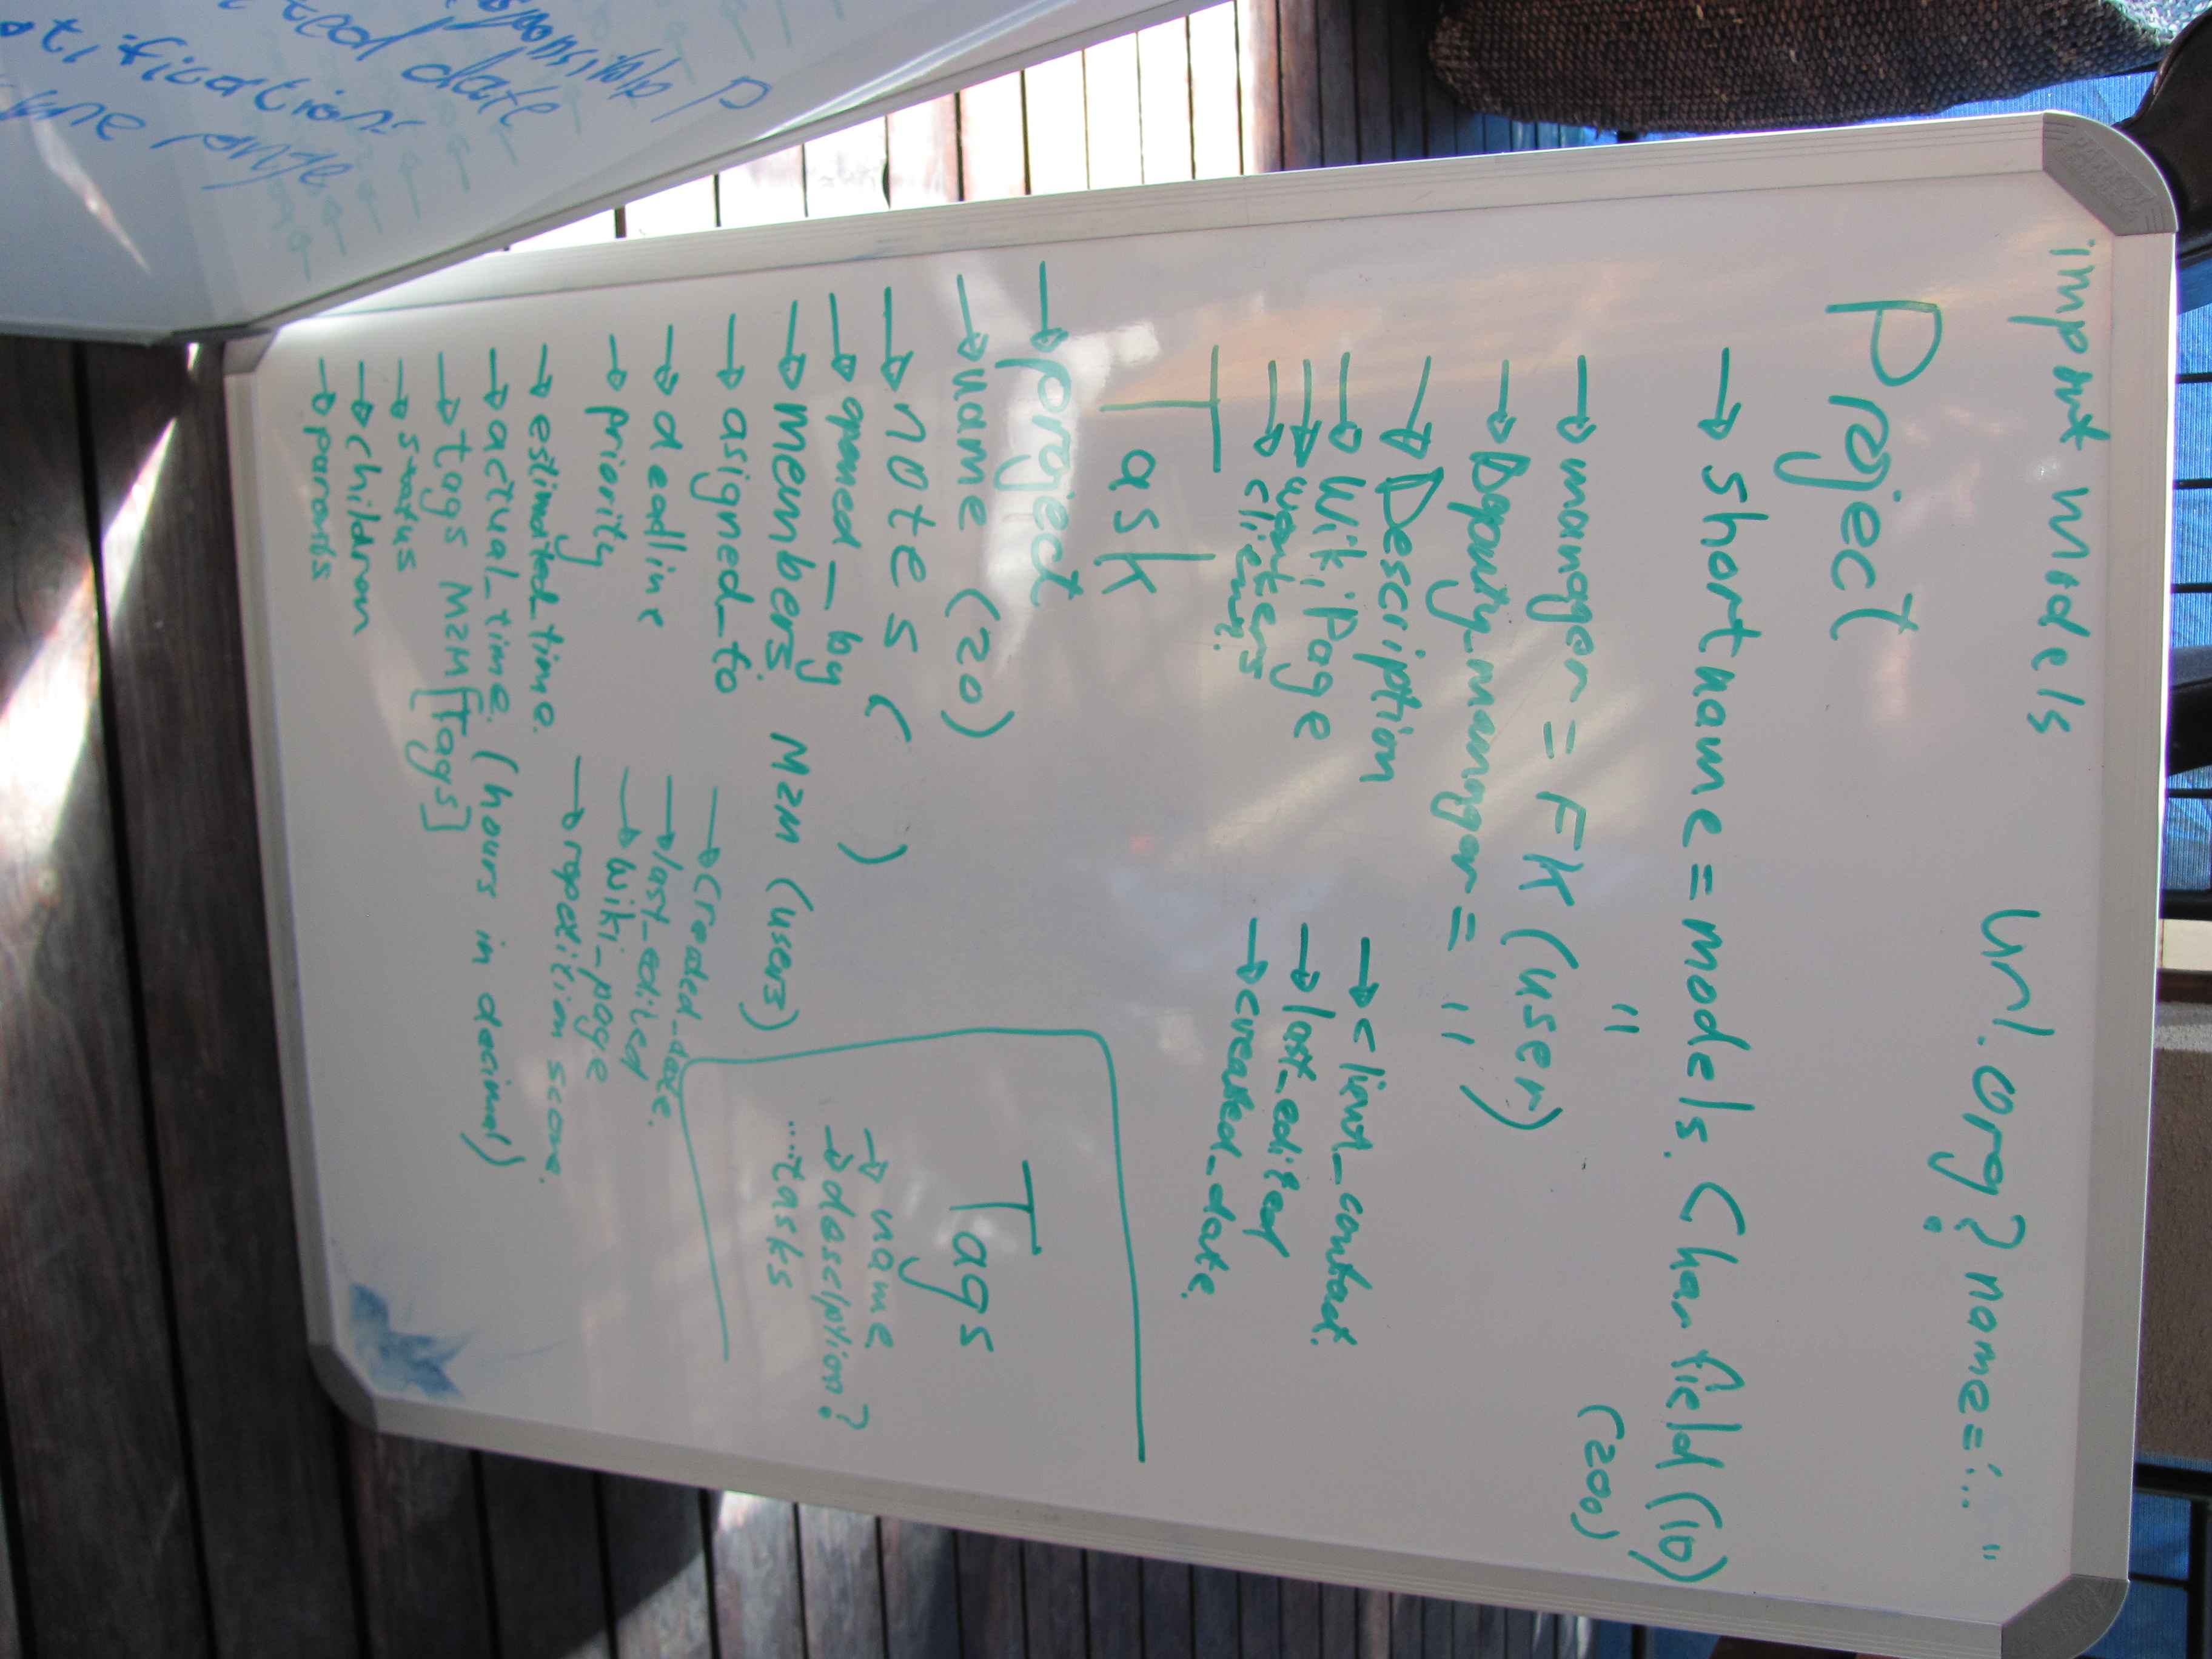 import models
url.org? name="..."
Project
→ shortname = models. Charfield (10)
" (200)
→ manager = FK (user)
→ Deputy_manager = "
→ Description
→ WikiPage
→ workers
→ client.
→ client_contact.
→ last_edited
→ created_date.
Task
→ project
→ name (20)
→ notes ( )
→ opened_by
→ members. M2M (users)
→ asigned_to
→ deadline
→ priority
→ estimated_time.
→ actual_time. (hours in decimal)
→ tags M2M [Tags]
→ status
→ children
→ parents
→ created_date.
→ last_edited
→ wiki_page
→ repetition score.
Tags
→ name
→ desciption?
....tasks
date